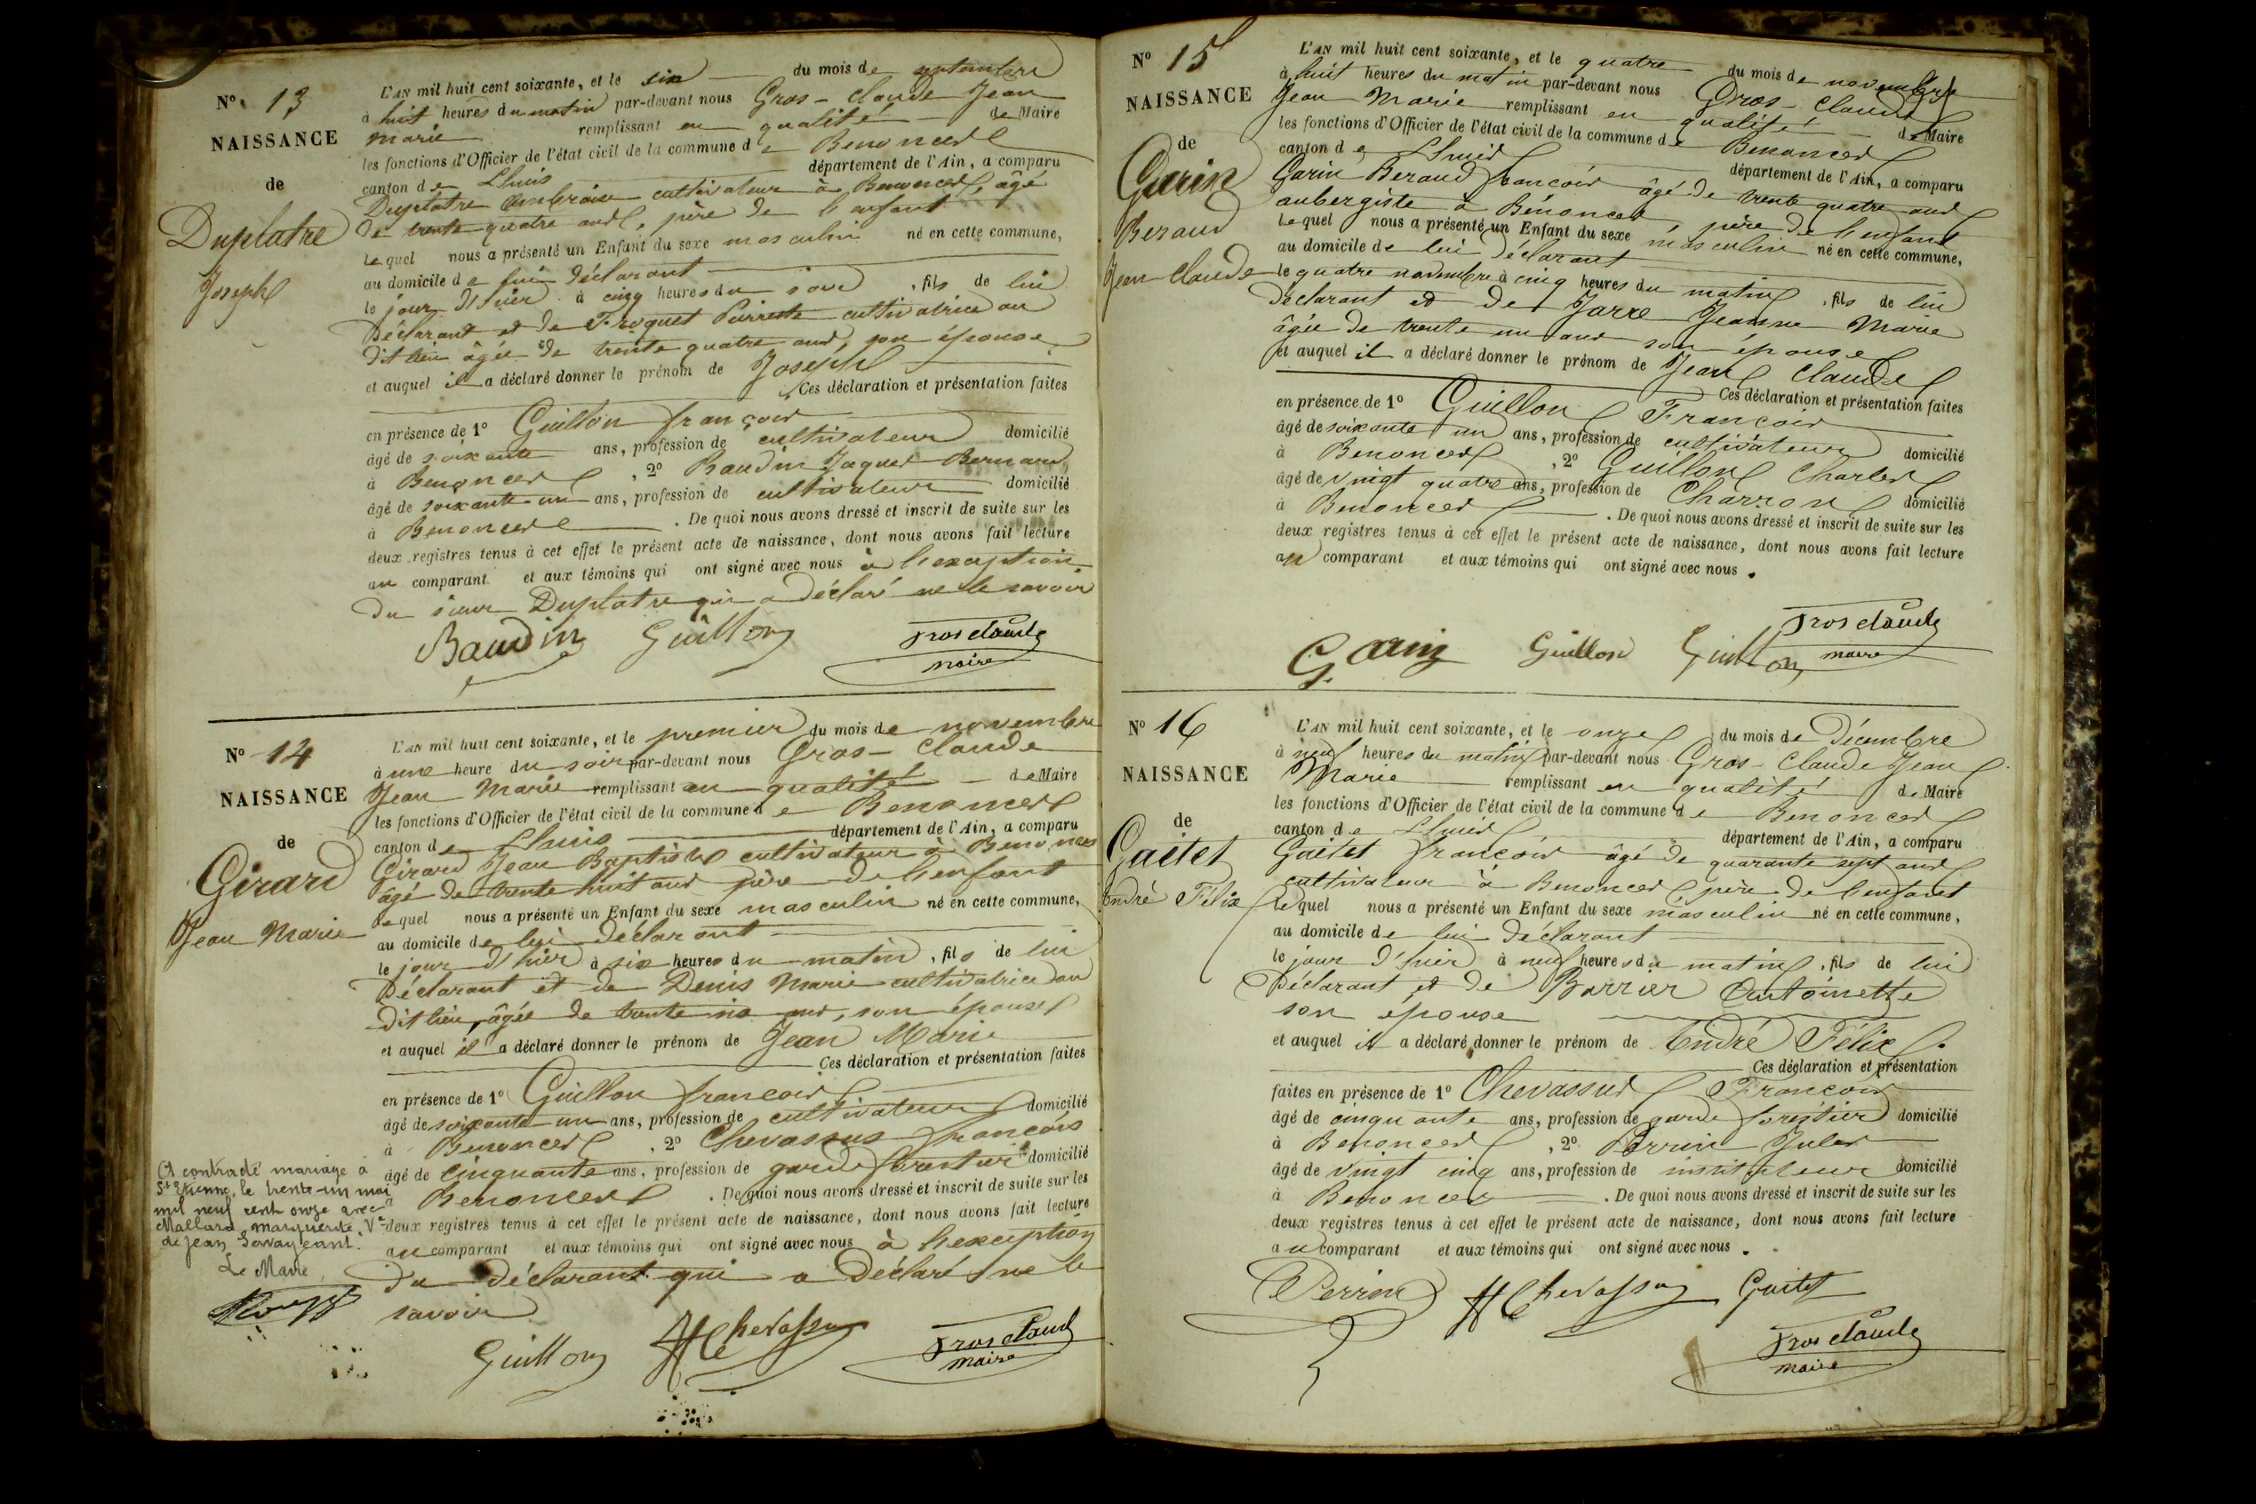 N° 13
NAISSANCE
de
Duplatre
Joseph
L'AN mil huit cent soixante, et le six du mois de septembre
à huit heures du matin par-devant nous Gros-Claude Jean
Marie remplissant en qualité de Maire
les fonctions d'Officier de l'état civil de la commune de Benonces
canton de Lhuis département de l'Ain, a comparu
Duplatre Ambroise cultivateur à Benonces, âgé
de trente quatre ans, père de l'enfant
Lequel nous a présenté un Enfant du sexe masculin né en cette commune,
au domicile de lui déclarant
le jour d'hier à cinq heures du soir, fils de lui
Déclarant et de Froquet Pierrette cultivatrice au
dit lieu âgée de trente quatre ans, son épouse
et auquel il a déclaré donner le prénom de Joseph
Ces déclaration et présentation faites
en présence de 1° Guillon françois
âgé de soixante ans, profession de cultivateur domicilié
à Benonces, 2° Baudin Jaques Bernard
âgé de soixante un ans, profession de cultivateur domicilié
à Benonces. De quoi nous avons dressé et inscrit de suite sur les
deux registres tenus à cet effet le présent acte de naissance, dont nous avons fait lecture
au comparant et aux témoins qui ont signé avec nous à l'exception
du sieur Duplatre qui a déclaré ne le savoir
Baudin Guillon Grosclaude
maire
N° 14
NAISSANCE
de
Girard
Jean Marie
L'AN mil huit cent soixante, et le premier du mois de novembre
à une heure du soir par-devant nous Gros-Claude
Jean Marie remplissant en qualité de Maire
les fonctions d'Officier de l'état civil de la commune de Benonces
canton de Lhuis département de l'Ain, a comparu
Girard Jean Baptiste cultivateur à Benonces
âgé de trente huit ans père de l'enfant
Lequel nous a présenté un Enfant du sexe masculin né en cette commune,
au domicile de lui déclarant
le jour d'hier à six heures du matin, fils de lui
Déclarant et de Denis Marie cultivatrice au
dit lieu, âgée de trente six ans, son épouse
et auquel il a déclaré donner le prénom de Jean Marie
Ces déclaration et présentation faites
en présence de 1° Guillon françois
âgé de soixante un ans, profession de cultivateur domicilié
à Benonces, 2° Chevassus françois
âgé de cinquante ans, profession de garde forestier domicilié
à Benonces. De quoi nous avons dressé et inscrit de suite sur les
deux registres tenus à cet effet le présent acte de naissance, dont nous avons fait lecture
au comparant et aux témoins qui ont signé avec nous à l'exception
du déclarant qui a déclaré ne le
savoir
Guillon Chevassus Grosclaude
maire
A contracté mariage à
St Etienne, le trente-un mai
mil neuf cent onze avec
Mallard Marguerite, Ve
de Jean
Le Maire
N° 15
NAISSANCE
de
Garin
Beraud
Jean Claude
L'AN mil huit cent soixante, et le quatre du mois de novembre
à huit heures du matin par-devant nous Gros-Claude
Jean Marie remplissant en qualité de Maire
les fonctions d'Officier de l'état civil de la commune de Benonces
canton de Lhuis département de l'Ain, a comparu
Garin Beraud françois âgé de trente quatre ans
aubergiste à Bénonces père de l'enfant
Lequel nous a présenté un Enfant du sexe masculin né en cette commune,
au domicile de lui déclarant
le quatre novembre à cinq heures du matin, fils de lui
Déclarant et de Jarre Jeanne Marie
âgée de trente un ans son épouse
et auquel il a déclaré donner le prénom de Jean Claude
Ces déclaration et présentation faites
en présence de 1° Guillon François
âgé de soixante un ans, profession de cultivateur domicilié
à Benonces, 2° Guillon Charles
âgé de vingt quatre ans, profession de Charron domicilié
à Benonces. De quoi nous avons dressé et inscrit de suite sur les
deux registres tenus à cet effet le présent acte de naissance, dont nous avons fait lecture
au comparant et aux témoins qui ont signé avec nous.
Garin Guillon Guillon Grosclaude
maire
N° 16
NAISSANCE
de
Gaitet
André Félix
L'AN mil huit cent soixante, et le onze du mois de Décembre
à neuf heures du matin par-devant nous Gros-Claude Jean
Marie remplissant en qualité de Maire
les fonctions d'Officier de l'état civil de la commune de Benonces
canton de Lhuis département de l'Ain, a comparu
Gaitet françois âgé de quarante sept ans
cultivateur à Benonces père de l'enfant
Lequel nous a présenté un Enfant du sexe masculin né en cette commune,
au domicile de lui déclarant
le jour d'hier à neuf heures du matin, fils de lui
Déclarant et de Barrier Antoinette
son épouse
et auquel il a déclaré donner le prénom de André Félix.
Ces déclaration et présentation
faites en présence de 1° Chevassus François
âgé de cinquante ans, profession de garde forestier domicilié
à Benonces, 2° Perrin Jules
âgé de vingt cinq ans, profession de instituteur domicilié
à Benonces. De quoi nous avons dressé et inscrit de suite sur les
deux registres tenus à cet effet le présent acte de naissance, dont nous avons fait lecture
au comparant et aux témoins qui ont signé avec nous.
Perrin Chevassus Gaitet
Grosclaude
maire